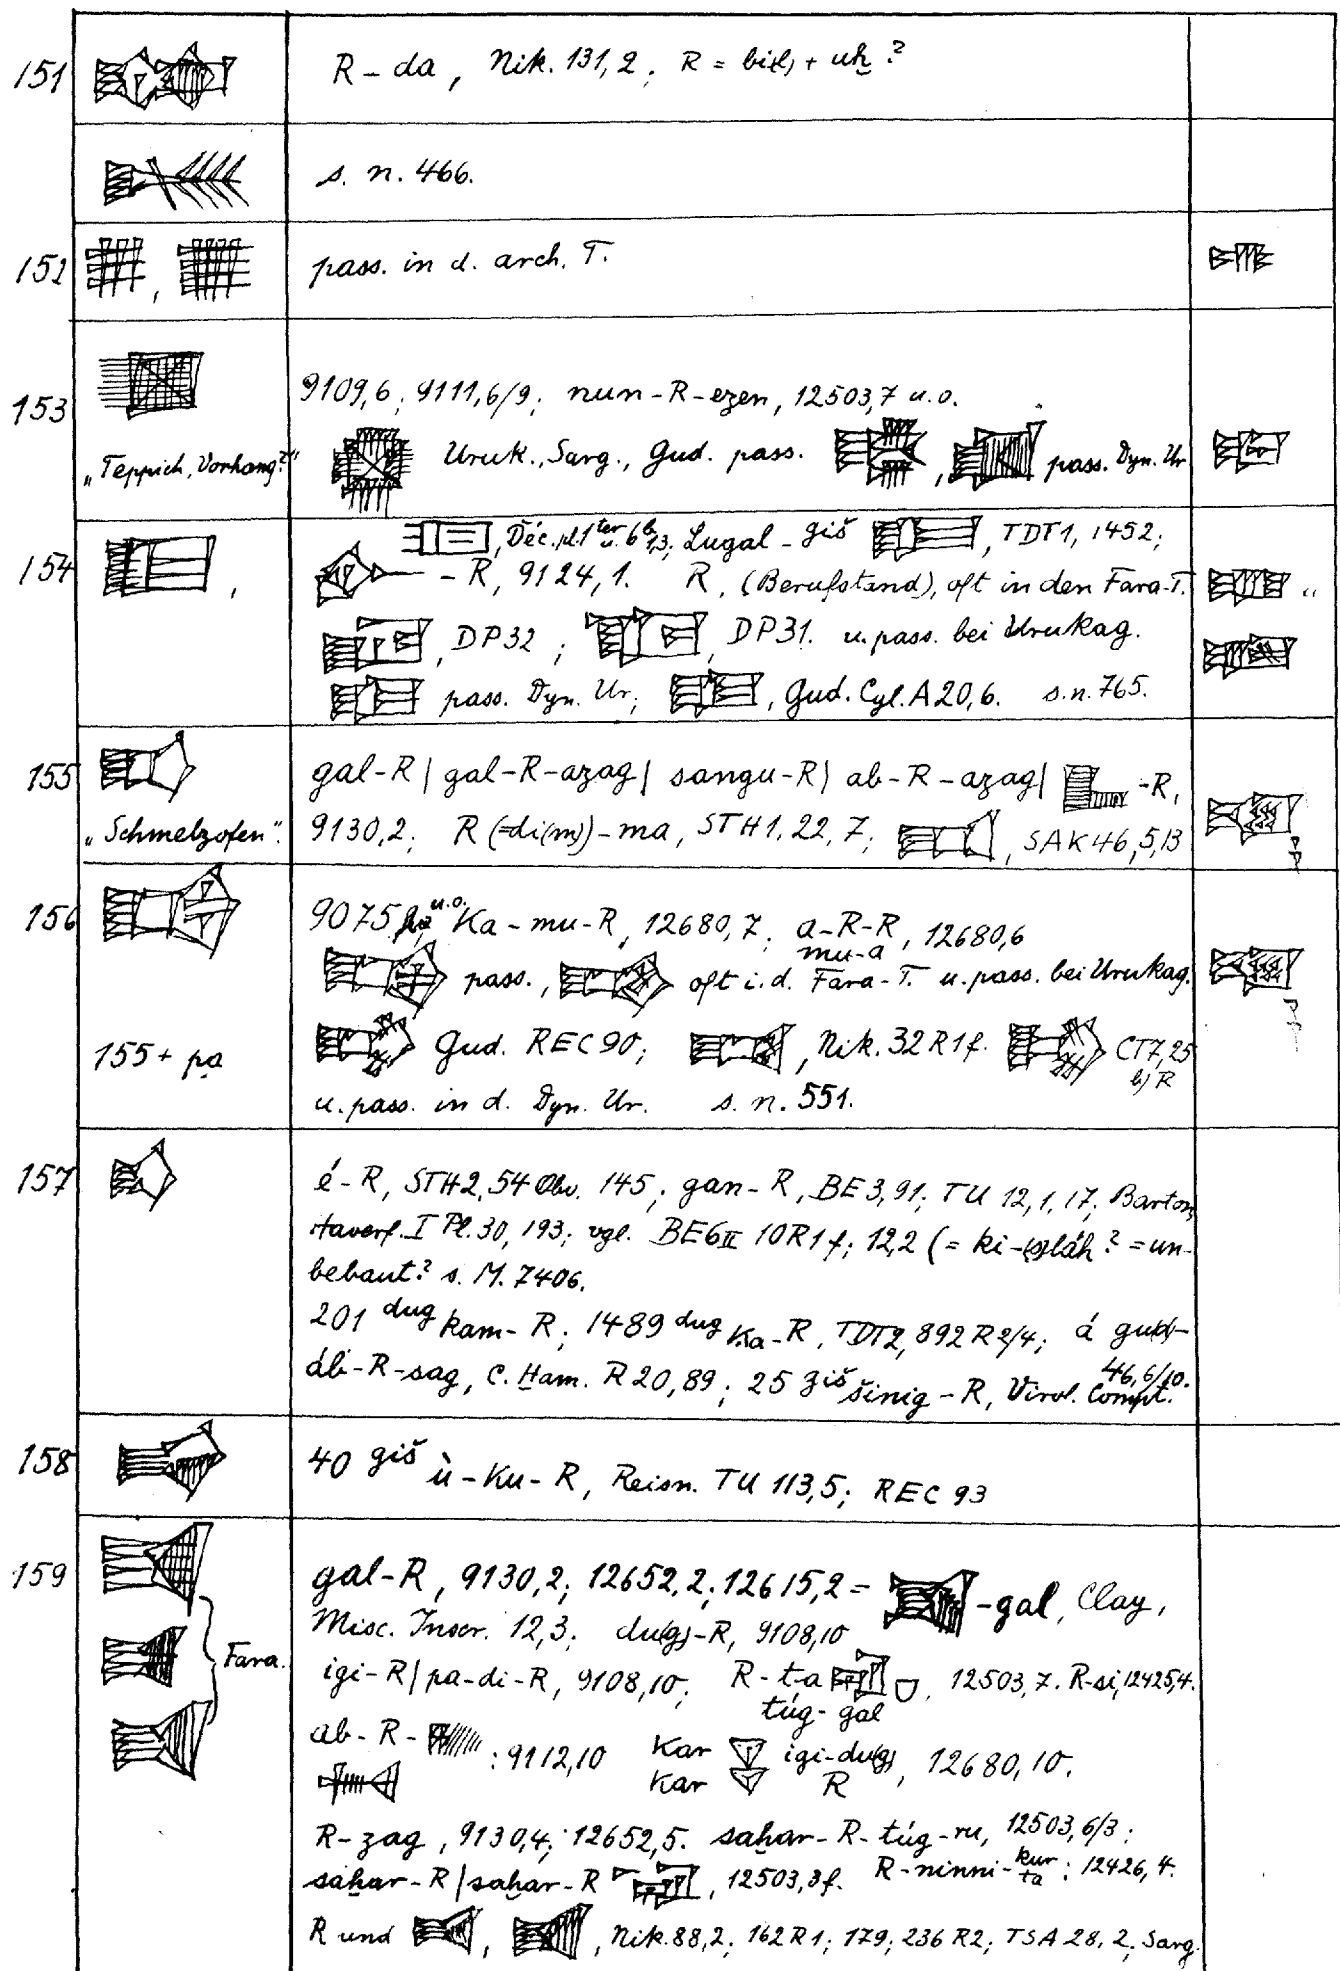 151 R-da, Nik. 131,2; R = bi(l) + uḫ?
s. n. 466.
152 pass. in d. arch. T.
153 9109,6; 9111,6/9; nun-R-ezen, 12503,7 u.o.
„Teppich, Vorhang?" Uruk., Sarg., Gud. pass. , pass. Dyn. Ur
154 , Déc. pl. 1 ter u. 6 b 1,3; Lugal-giš , TDT1, 1452;
-R, 9124,1. R, (Berufstand), oft in den Fara-T.
, DP32 ; , DP31. u. pass. bei Urukag.
pass. Dyn. Ur; , Gud. Cyl. A 20,6. s. n. 765.
155 gal-R | gal-R-azag | sangu-R | ab-R-azag | -R,
„Schmelzofen". 9130,2; R (=di(m))-ma, STH1, 22, 7; , SAK 46, 5,13
156 9075 u.o. Ka-mu-R, 12680,7; a-R-R mu-a, 12680,6
pass., oft i. d. Fara-T. u. pass. bei Urukag.
155 + pa Gud. REC 90; , Nik. 32 R 1 f. CT7,25 b) R
u. pass. in d. Dyn. Ur. s. n. 551.
157 é-R, STH2,54 Obv. 145; gan-R, BE3,91; TU 12,1,17; Barton,
Haverf. I Pl. 30, 193; vgl. BE6 II 10 R 1 f; 12,2 (= ki-(s)láh? = un-
bebaut? s. M. 7406.
201 dug kam-R; 1489 dug Ka-R, TDT2, 892 R 2/4; á gud-
áb-R-sag, C. Ham. R 20,89; 25 giš šinig-R, Virol. Compt. 46,6/10.
158 40 giš ù-Ku-R, Reisn. TU 113,5; REC 93
159 gal-R, 9130,2; 12652,2; 12615,2 = -gal, Clay,
Misc. Inscr. 12,3; du(g)-R, 9108,10
Fara. igi-R | pa-di-R, 9108,10; R-ta , 12503,7. R-si, 12425,4.
túg-gal
ab-R- : 9112,10 Kar igi-du(g), 12680,10.
Kar R
R-zag, 9130,4; 12652,5. saḫar-R-túg-ru, 12503,6/3;
saḫar-R | saḫar-R , 12503,3f. R-ninni-kur ta : 12426,4.
R und , , Nik. 88,2; 162 R 1; 179; 236 R2; TSA 28,2; Sarg.